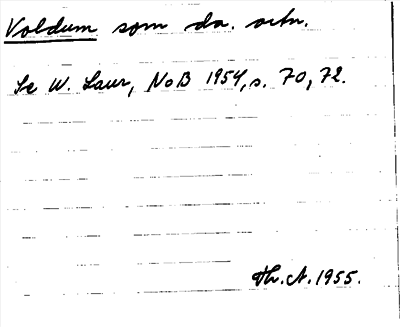 Voldum som da. ortn.
Se W. Laur, NoB 1954, s. 70, 72.
Th. A. 1955.